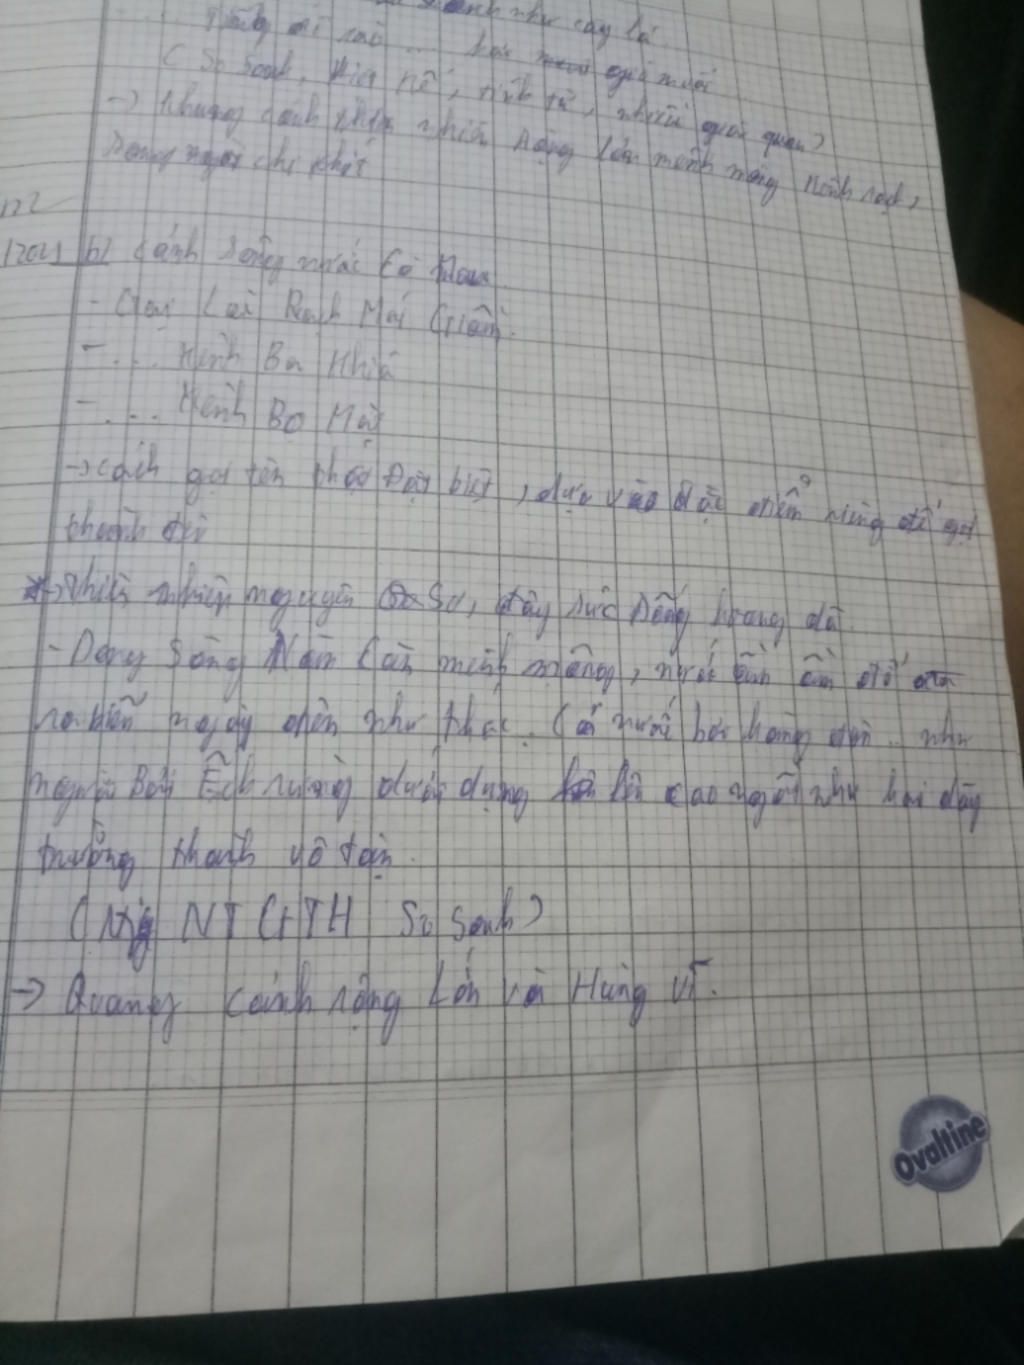 như cây lá
(So Sánh, liệt kê, tính từ, nhiều giác quan)
-> Khung cảnh thiên nhiên rộng lớn mênh mông
122
12021 b/ Cảnh sông nước Cà Mau
- Gọi Là Rạch Mái Giầm.
- ... Kênh Ba Khía
- ... Kênh Bọ Mắt
-> cách gọi tên Đặt biệt, dựa vào đặc điểm riêng để gọi
thành tên
-> Thiên nhiên nguyên Sơ, đầy sức sống hoang dã
- Dòng Sông Năm Căn mênh mông, nước ầm ầm đổ
ra biển ngày đêm như thác. Cá nước bơi hàng đàn .. như
người Bơi Ếch rừng đước dựng lên cao ngất như hai dãy
trường thành vô tận.
( NT So Sánh)
-> Quang cảnh rộng Lớn và Hùng vĩ.
Ovaltine